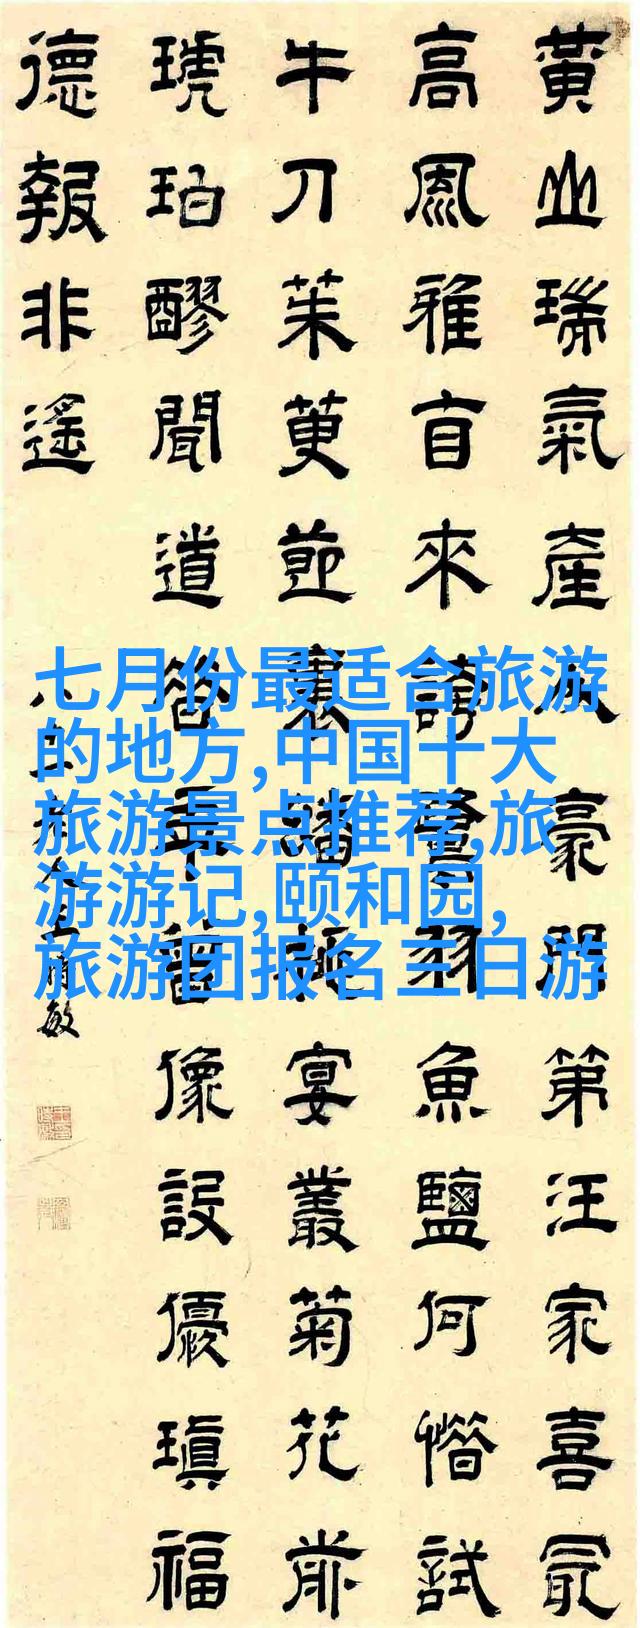 七月份最适合旅游
的地方,中国十大
旅游景点推荐,旅
游游记,颐和园,
旅游团报名三日游
黃山瑞氣產豪門第汪家喜最
高風雅來魚鹽何惜試
牛刀茱萸節裏宴叢菊花前
琥珀醪聞道年曾像設優瑱福
德報非遙